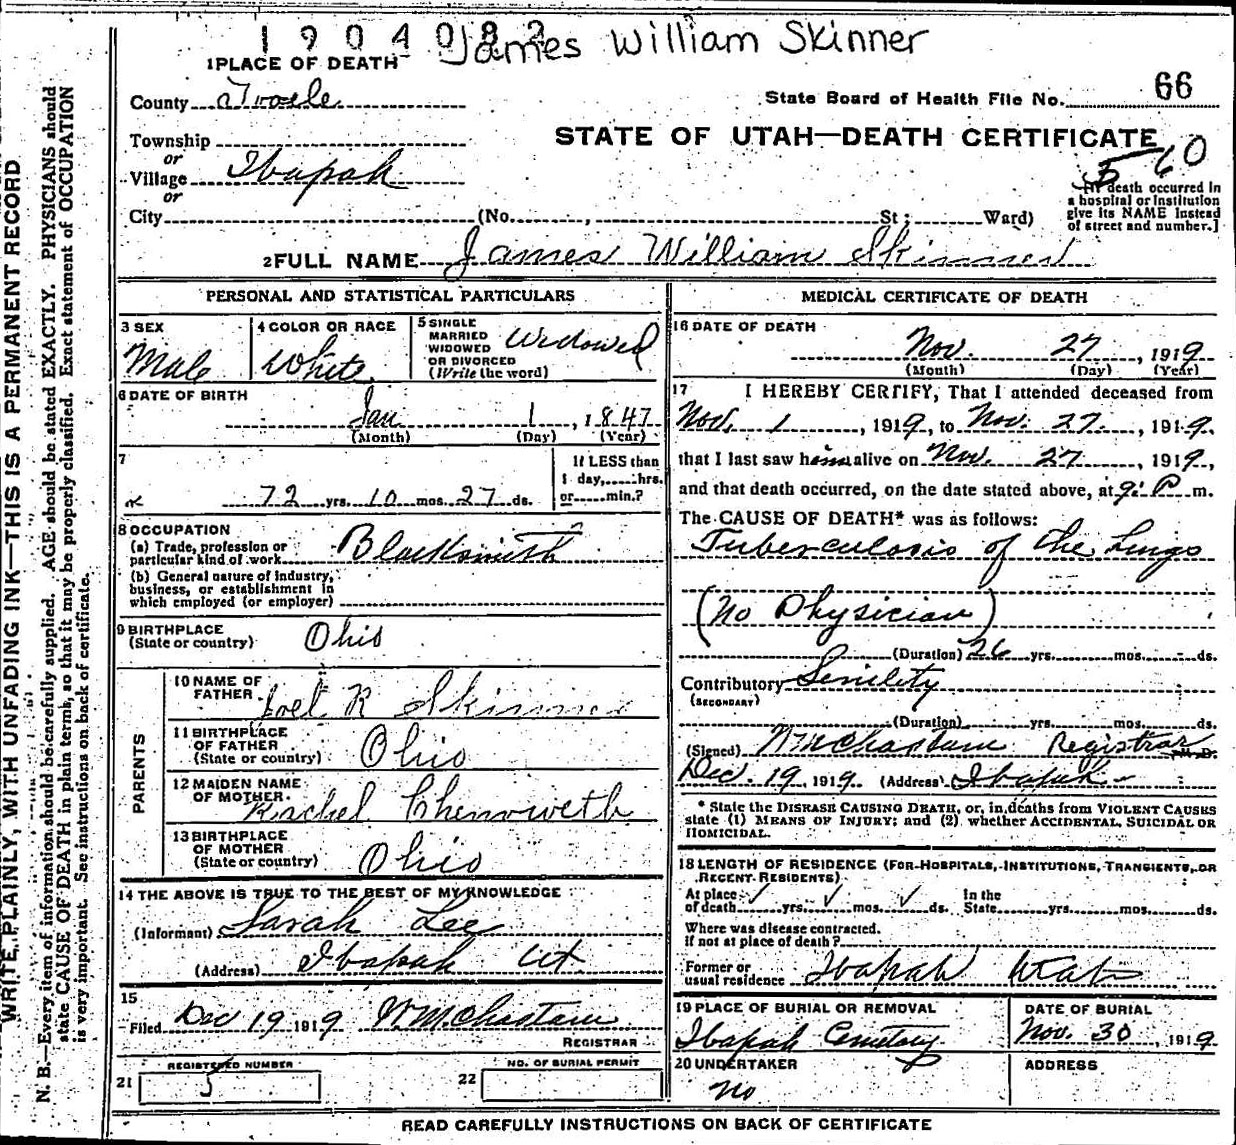 1904082 James William Skinner
1 PLACE OF DEATH
County Tooele
State Board of Health File No. 66
Township
or
Village Ibapah
or
City (No. , St; Ward)
STATE OF UTAH—DEATH CERTIFICATE
5 60
[If death occurred in
a hospital or institution
give its NAME instead
of street and number.]
2 FULL NAME James William Skinner
PERSONAL AND STATISTICAL PARTICULARS
3 SEX
Male
4 COLOR OR RACE
White
5 SINGLE
MARRIED
WIDOWED
OR DIVORCED
(Write the word)
Widowed
6 DATE OF BIRTH
Jan 1, 1847
(Month) (Day) (Year)
7
72 yrs. 10 mos. 27 ds.
If LESS than
1 day, hrs.
or min.?
8 OCCUPATION
(a) Trade, profession or
particular kind of work Blacksmith
(b) General nature of industry,
business, or establishment in
which employed (or employer)
9 BIRTHPLACE
(State or country) Ohio
PARENTS
10 NAME OF
FATHER Joel R Skinner
11 BIRTHPLACE
OF FATHER
(State or country) Ohio
12 MAIDEN NAME
OF MOTHER Rachel Chenoweth
13 BIRTHPLACE
OF MOTHER
(State or country) Ohio
14 THE ABOVE IS TRUE TO THE BEST OF MY KNOWLEDGE
(Informant) Sarah Lee
(Address) Ibapah Ut
15
Filed Dec 19 1919 Wm Chastain
REGISTRAR
REGISTERED NUMBER
21 5
NO. OF BURIAL PERMIT
22
MEDICAL CERTIFICATE OF DEATH
16 DATE OF DEATH
Nov. 27, 1919
(Month) (Day) (Year)
17 I HEREBY CERTIFY, That I attended deceased from
Nov. 1, 1919, to Nov. 27, 1919,
that I last saw him alive on Nov. 27, 1919,
and that death occurred, on the date stated above, at 9 P m.
The CAUSE OF DEATH* was as follows:
Tuberculosis of the Lungs
(No Physician)
(Duration) 26 yrs. mos. ds.
Contributory Senility
(SECONDARY)
(Duration) yrs. mos. ds.
(Signed) Wm Chastain Registrar M. D.
Dec. 19, 1919. (Address) Ibapah
* State the DISEASE CAUSING DEATH, or, in deaths from VIOLENT CAUSES
state (1) MEANS OF INJURY; and (2) whether ACCIDENTAL, SUICIDAL OR
HOMICIDAL.
18 LENGTH OF RESIDENCE (FOR HOSPITALS, INSTITUTIONS, TRANSIENTS, OR
RECENT RESIDENTS)
At place
of death yrs. mos. ds.
In the
State yrs. mos. ds.
Where was disease contracted.
if not at place of death?
Former or
usual residence Ibapah Utah
19 PLACE OF BURIAL OR REMOVAL
Ibapah Cemetery
DATE OF BURIAL
Nov. 30, 1919
20 UNDERTAKER
No
ADDRESS
READ CAREFULLY INSTRUCTIONS ON BACK OF CERTIFICATE
WRITE PLAINLY, WITH UNFADING INK—THIS IS A PERMANENT RECORD
N. B.—Every item of information should be carefully supplied. AGE should be stated EXACTLY. PHYSICIANS should
state CAUSE OF DEATH in plain terms, so that it may be properly classified. Exact statement of OCCUPATION
is very important. See instructions on back of certificate.